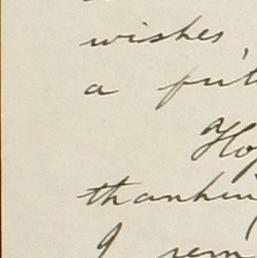 wishes,
a fut
Ho
thankin
I rem